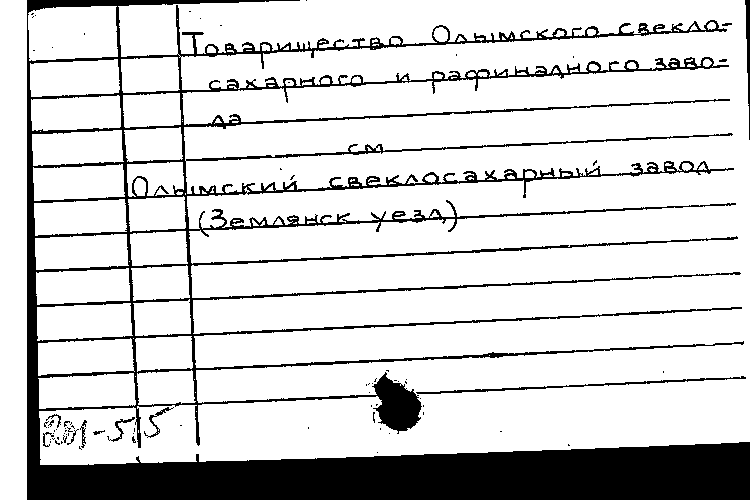 Товарищество Олымского свекло-
сахарного и рафинадного заво-
да
см
Олымский свеклосахарный завод
(Землянск уезд)
201-5,5